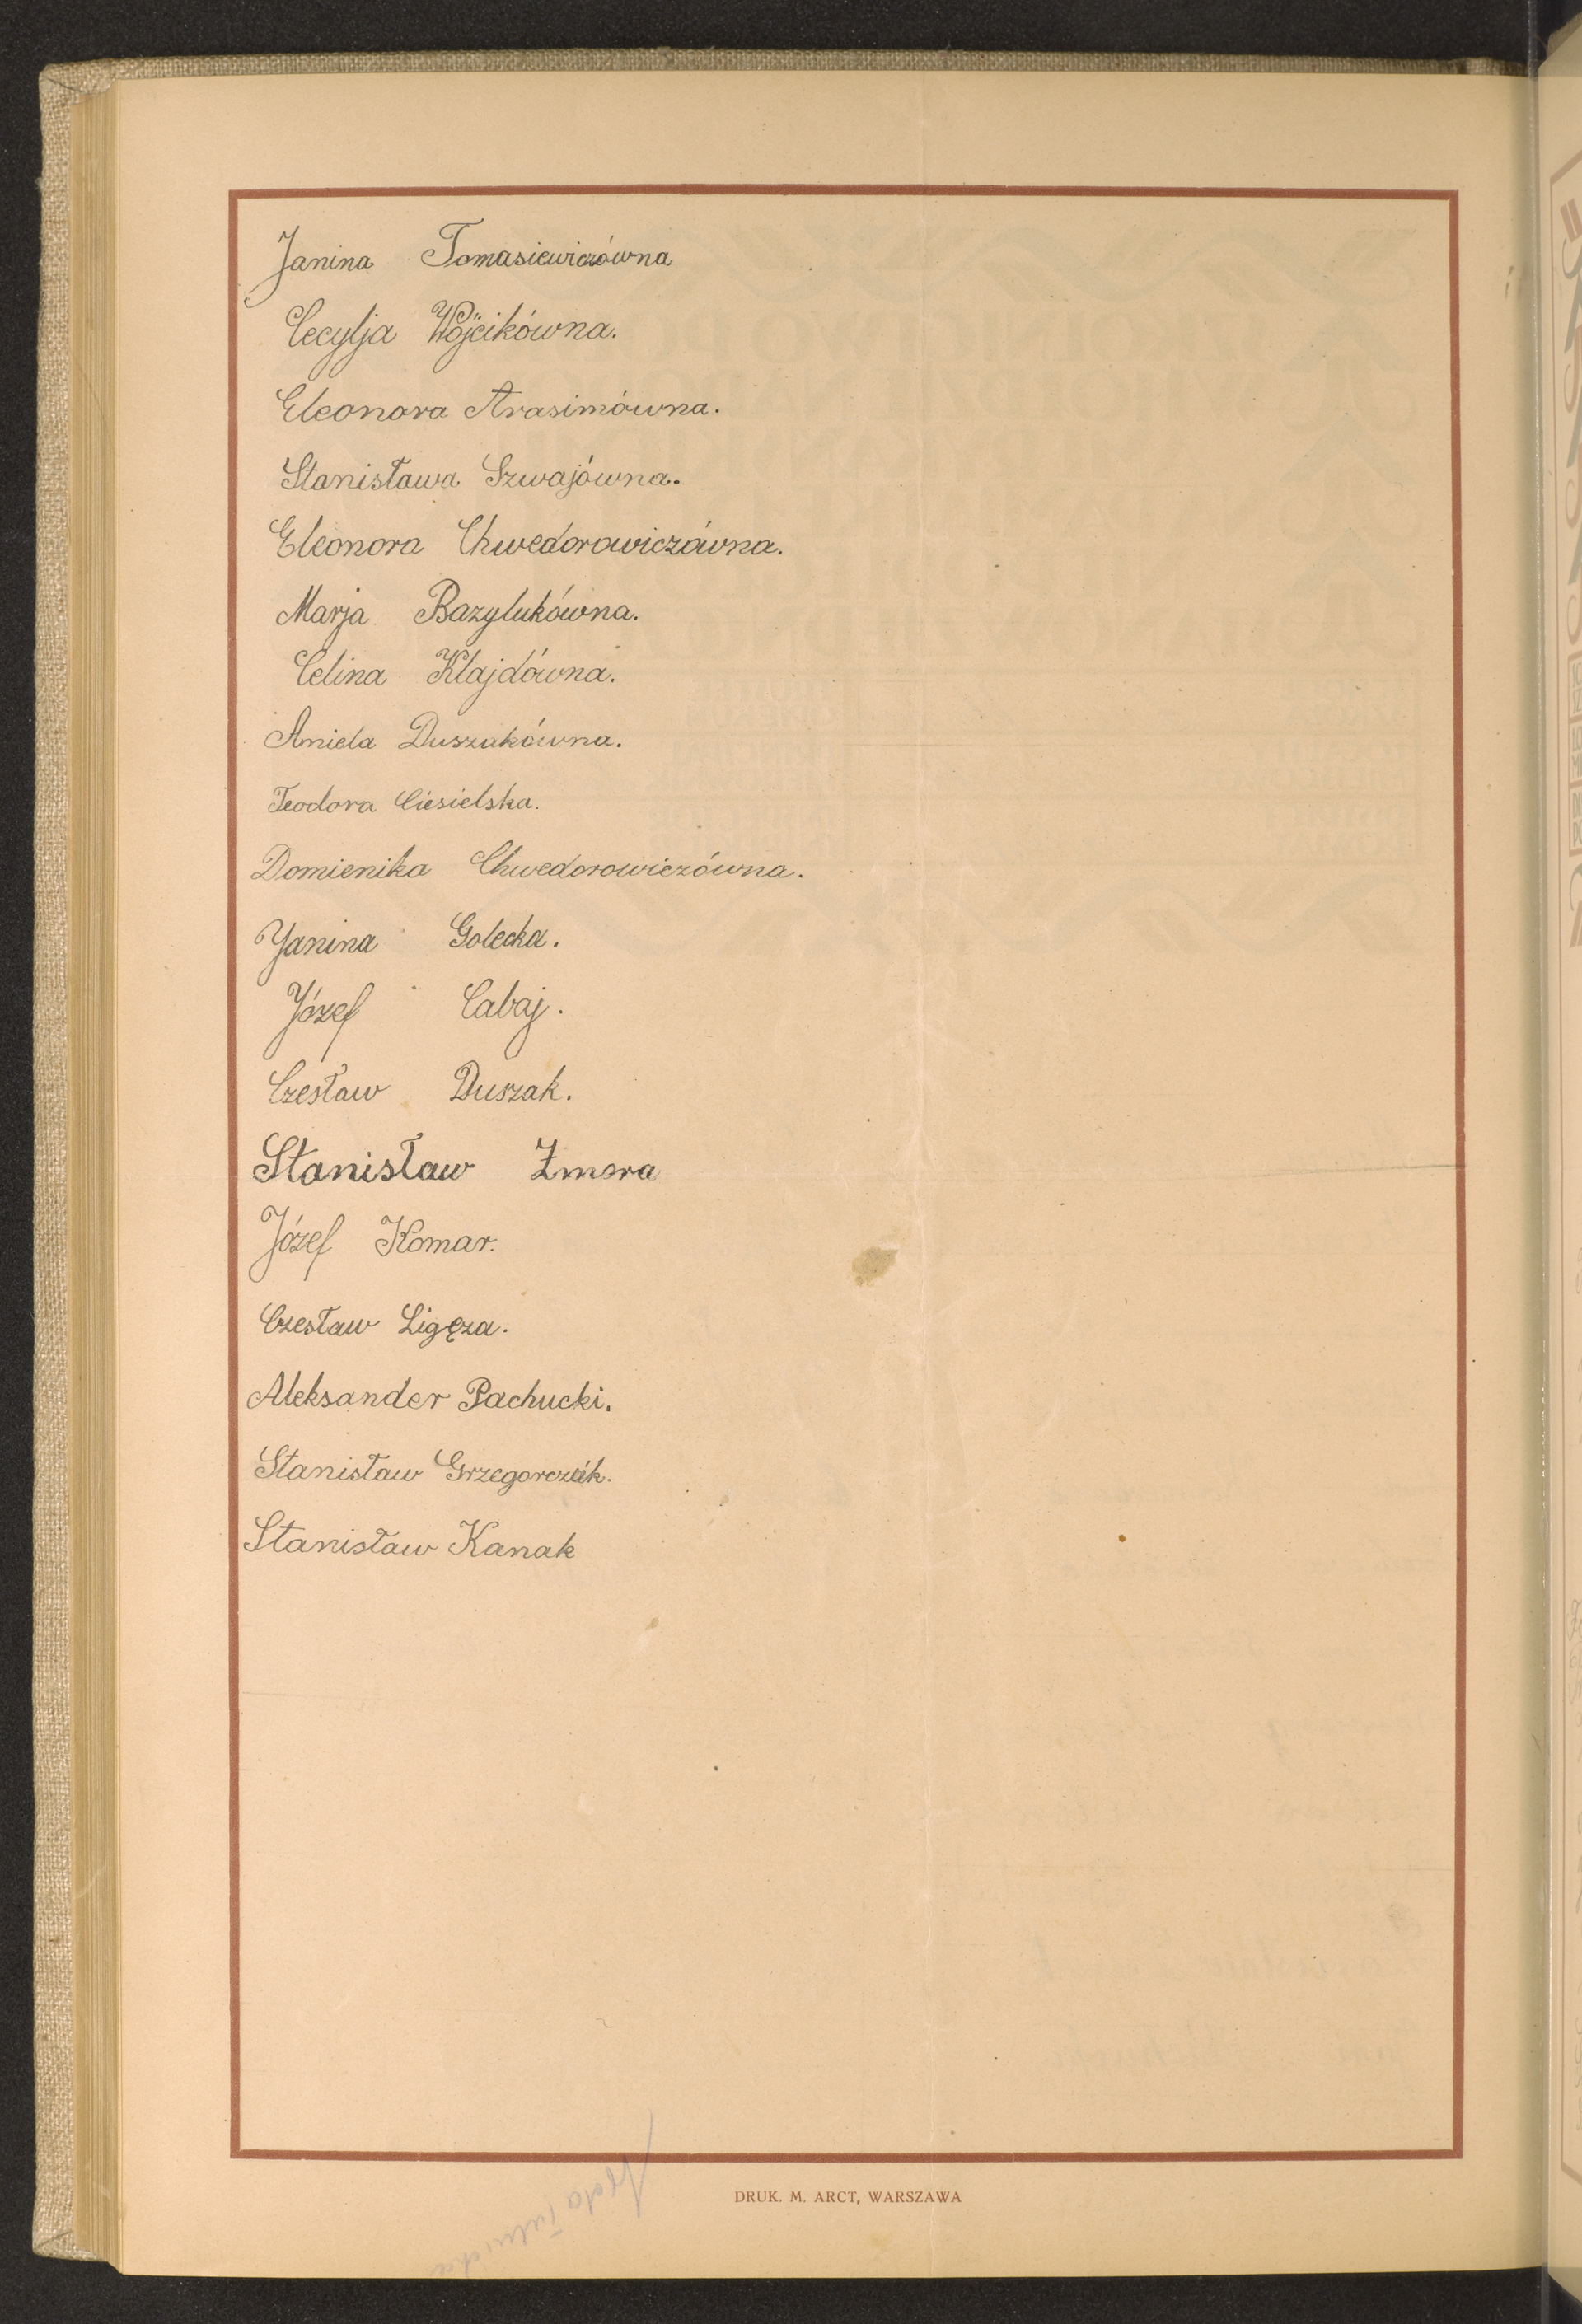 Janina Tomasiewiczówna
Cecylja Wójcikówna.
Eleonora Arasimówna.
Stanisława Szwajówna.
Eleonora Chwedorowiczówna.
Marja Bazylukówna.
Celina Klajdówna.
Aniela Duszakówna.
Teodora Ciesielska.
Domienika Chwedorowiczówna.
Janina Golecka.
Józef Cabaj.
Czesław Duszak.
Stanisław Żmora
Józef Komar.
Czesław Ligęza.
Aleksander Pachucki.
Stanisław Grzegorczuk.
Stanisław Kanak
DRUK. M. ARCT, WARSZAWA